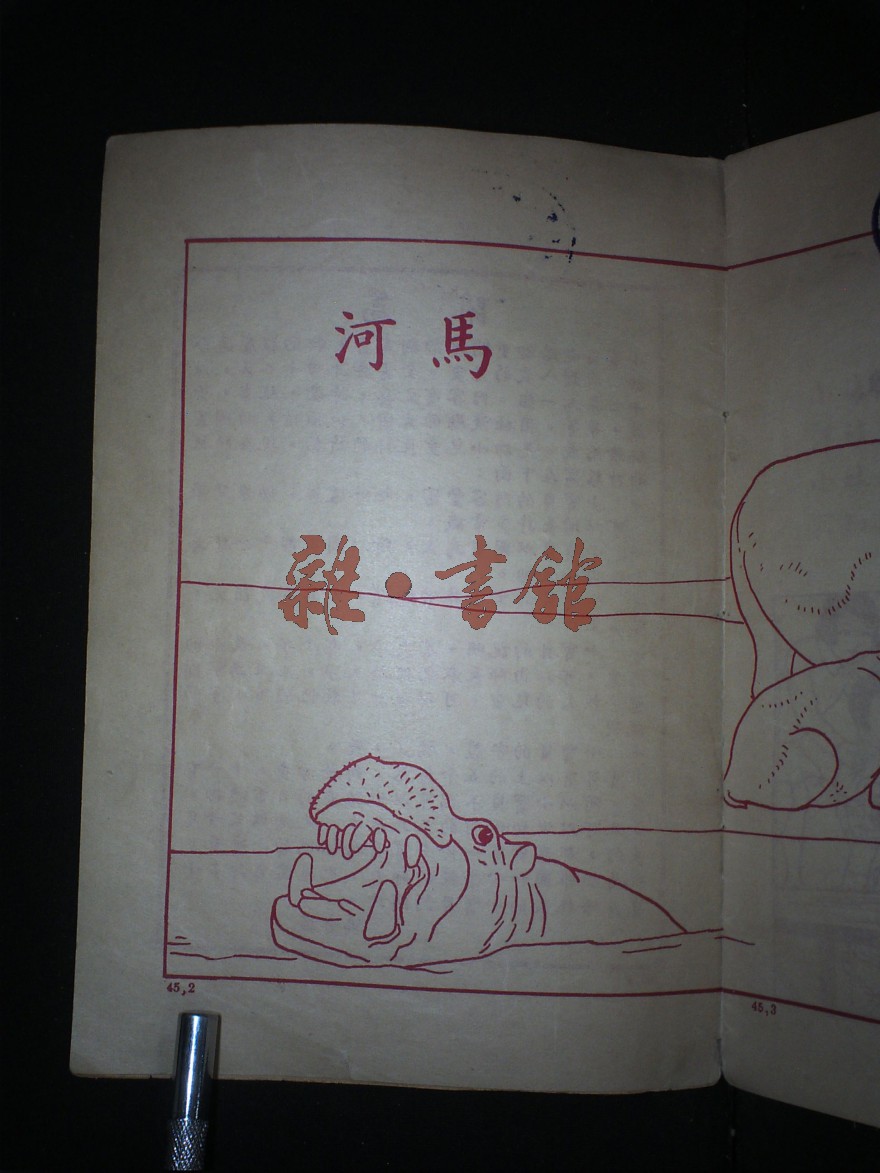 河馬
雜·書館
45,2
45,3